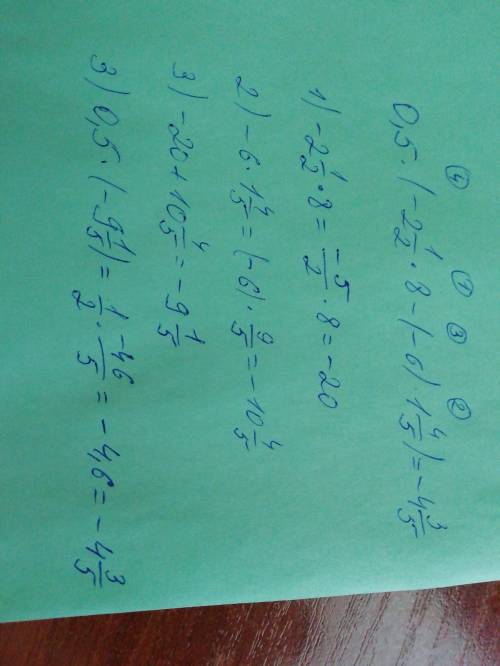 ④ ① ③ ②
0,5 · (-2 1/2 · 8 - (-6) · 1 4/5) = -4 3/5
1) -2 1/2 · 8 = -5/2 · 8 = -20
2) -6 · 1 4/5 = (-6) · 9/5 = -10 4/5
3) -20 + 10 4/5 = -9 1/5
3) 0,5 · (-9 1/5) = 1/2 · -46/5 = -4,6 = -4 3/5